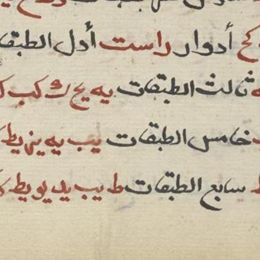 كح أدوار راست أول الطبقا
ثالث الطبقات يه يح ك كب ك
خامس الطبقات يب يه يز يط
سابع الطبقات ط يب يد يو يط